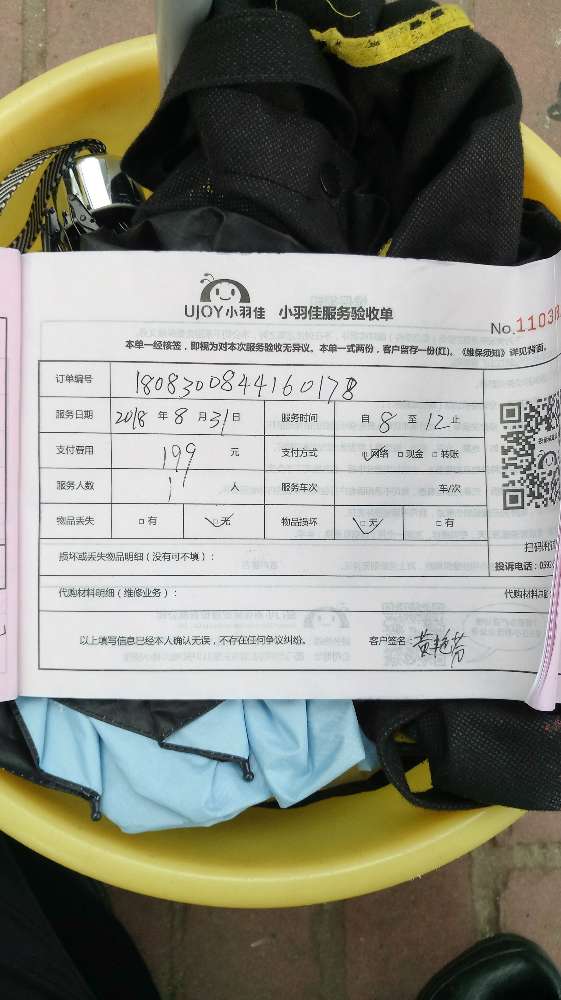 UJOY小羽佳 小羽佳服务验收单
No.11038
本单一经核签，即视为对本次服务验收无异议。本单一式两份，客户留存一份(红)。《维保须知》详见背面。
订单编号 1808300844160178
服务日期 2018 年 8 月 31 日 服务时间 自 8 至 12 止
支付费用 199 元 支付方式 ☑网络 □现金 □转账
服务人数 1 人 服务车次 车/次
物品丢失 □有 ☑无 物品损坏 ☑无 □有
损坏或丢失物品明细（没有可不填）：
扫码
投诉电话：059
代购材料明细（维修业务）： 代购材料
以上填写信息已经本人确认无误，不存在任何争议纠纷。 客户签名：黄艳芳